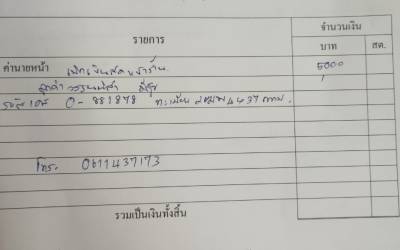 รายการ จำนวนเงิน
บาท สต.
ค่านายหน้า เบิกเงินสดหน้าร้าน 5000
ลูกค้า วรรณนิสา
รหัสเคส 0-881878 ทะเบียน 4437
โทร. 0611437173
รวมเป็นเงินทั้งสิ้น